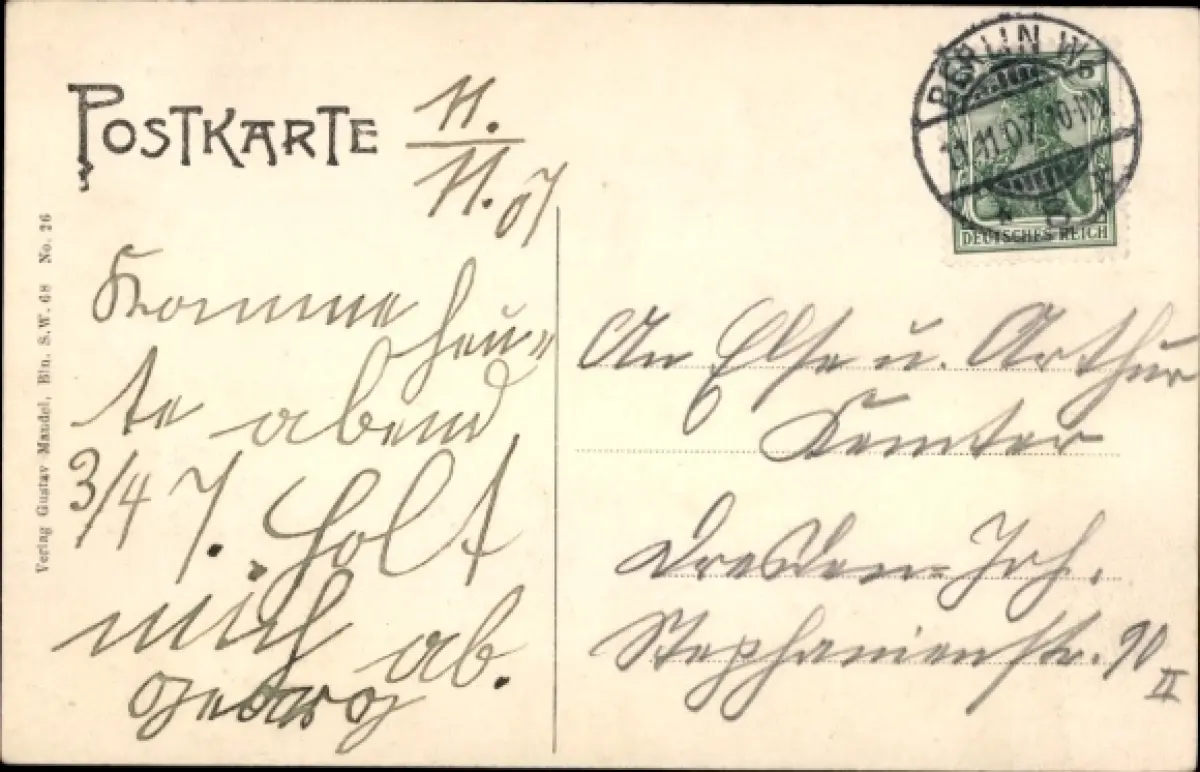 POSTKARTE
11.
11. 07
Komme heu-
te abend
3/4 7. Holt
mich ab.
Georg
Verlag Gustav Mandel, Bln. S.W. 68 No. 26
BERLIN W
11.11.07. 10-11V
* 8 *
5
DEUTSCHES REICH
An Else u. Arthur
Dresden-Joh.
Stephanienstr. 90
II